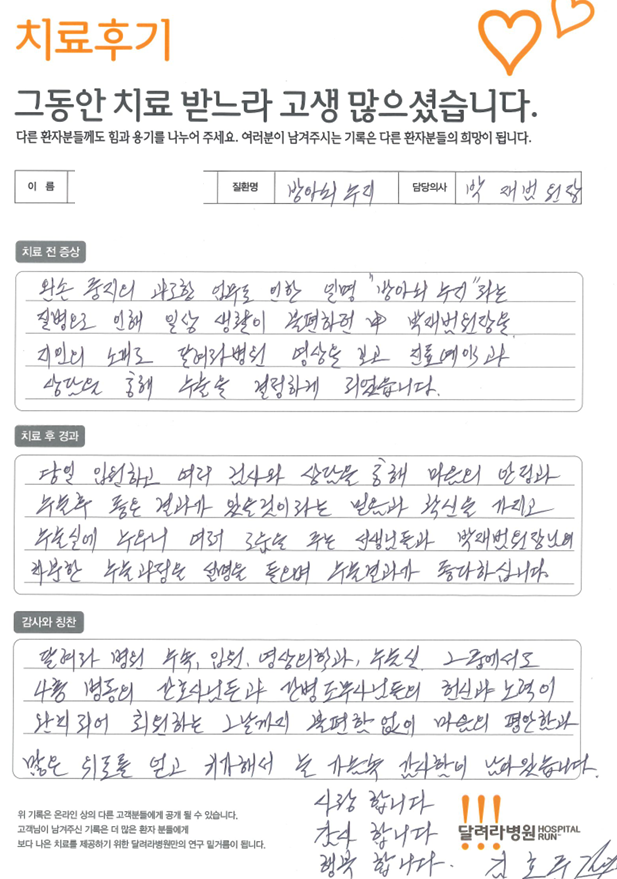 치료후기
그동안 치료 받느라 고생 많으셨습니다.
다른 환자분들께도 힘과 용기를 나누어 주세요. 여러분이 남겨주시는 기록은 다른 환자분들의 희망이 됩니다.
이 름 질환명 방아쇠 수지 담당의사 박 재범 원장
치료 전 증상
왼손 중지의 과도한 업무로 인한 일명 "방아쇠 수지"라는
질병으로 인해 일상 생활이 불편하던 中 박재범원장을
지인의 소개로 달려라병원 영상을 보고 진료예약과
상담을 통해 수술을 결정하게 되었습니다.
치료 후 경과
당일 입원하고 여러 검사와 상담을 통해 마음의 안정과
수술후 좋은 결과가 있을것이라는 믿음과 확신을 가지고
수술실에 누우니 여러 도움을 주는 선생님들과 박재범원장님의
차분한 수술과정을 설명을 들으며 수술결과가 좋다하십니다.
감사와 칭찬
달려라 병원 수속, 입원, 영상의학과, 수술실 그중에서도
4층 병동의 간호사님들과 간병도우사님들의 헌신과 노력이
회원하는 그날까지 불편함 없이 마음의 평안함과
많은 위로를 얻고 귀가해서 늘 가슴속 감사함이 남아있습니다.
사랑 합니다
감사 합니다
행복 합니다.
김 호
위 기록은 온라인 상의 다른 고객분들에게 공개 될 수 있습니다.
고객님이 남겨주신 기록은 더 많은 환자 분들에게
보다 나은 치료를 제공하기 위한 달려라병원만의 연구 밑거름이 됩니다.
달려라병원 HOSPITAL RUN